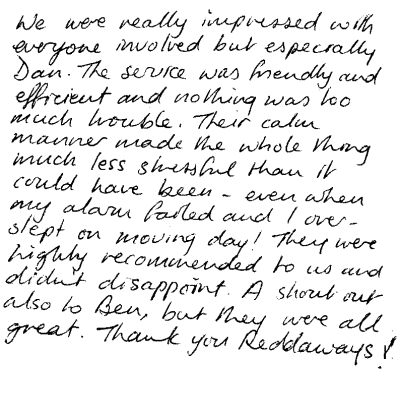 We were really impressed with
everyone involved but especially
Dan. The service was friendly and
efficient and nothing was too
much trouble. Their calm
manner made the whole thing
much less stressful than it
could have been - even when
my alarm failed and I over-
slept on moving day! They were
highly recommended to us and
didn't disappoint. A shout out
also to Ben, but they were all
great. Thank you Reddaways!